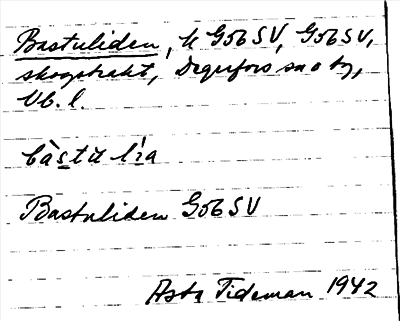 Bastuliden, k G56SV, G56SV,
skogstrakt, Degerfors sn o tg,
Vb. l.
bàstu lí̵a
Bastuliden G56SV
Asta Tideman 1942